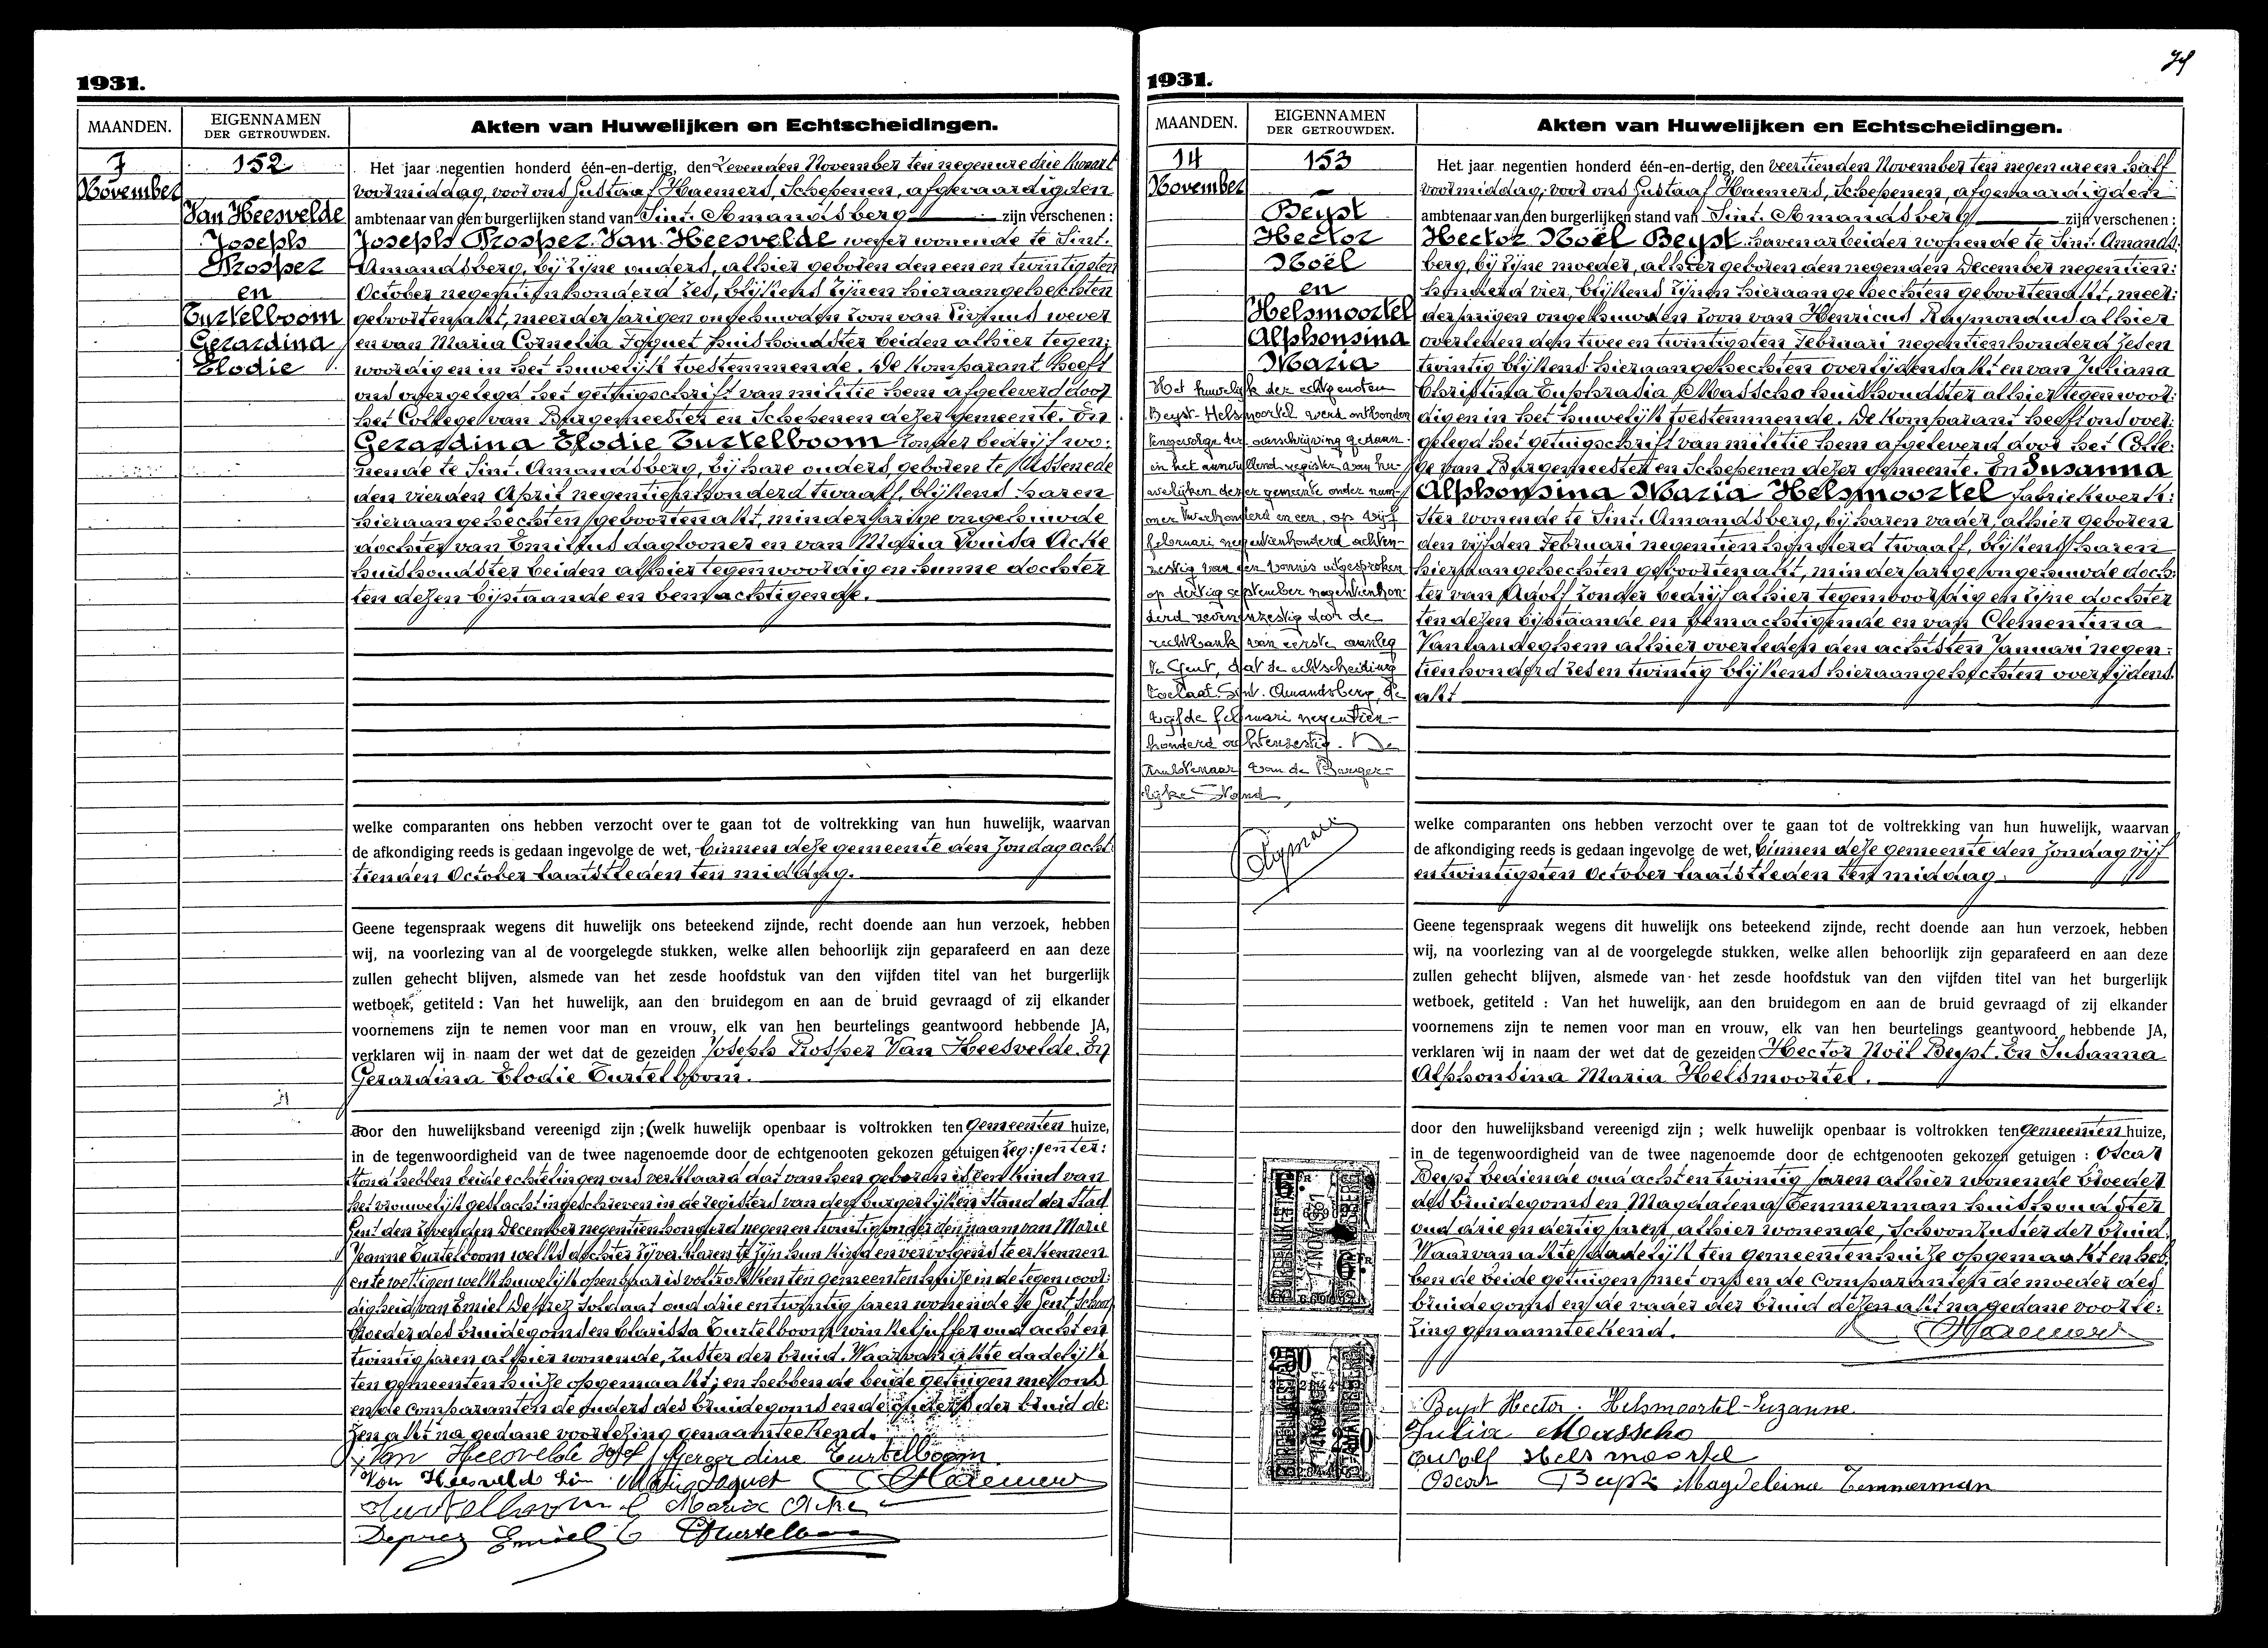 1931.
MAANDEN.
EIGENNAMEN
DER GETROUWDEN.
Akten van Huwelijken en Echtscheidingen.
7
November
152
Van Heesvelde
Joseph
Prosper
en
Turtelboom
Gerardina
Elodie
Het jaar negentien honderd één-en-dertig, den Zevenden November ten negen ure drie kwart
voormiddag, voor ons Gustaaf Haemers, Schepenen, afgevaardigden
ambtenaar van den burgerlijken stand van Sint. Amandsberg zijn verschenen :
Joseph Prosper Van Heesvelde wever wonende te Sint.
Amandsberg, bij zijne ouders, alhier geboren den een en twintigsten
October negentienhonderd zes, blijkens zijnen hieraangehechten
geboortenakt, meerderjarigen ongehuwden zoon van wever
en van Maria Cornelia Joquet huishoudster beiden alhier tegen:
woordig en in het huwelijk toestemmende. De komparant heeft
ons overgelegd het getuigschrift van militie hem afgeleverd door
het College van Burgemeester en Schepenen dezer gemeente. En
Gerardina Elodie Turtelboom zonder bedrijf wo:
nende te Sint. Amandsberg, bij hare ouders, geboren te Assenede
den vierden April negentienhonderd twaalf, blijkens haren
hieraangehechten geboortenakt, minderjarige ongehuwde
dochter van Emilius daglooner en van Maria Louisa Acke
huishoudster beiden alhier tegenwoordig en hunne dochter
ten dezen bijstaande en bemachtigende.
welke comparanten ons hebben verzocht over te gaan tot de voltrekking van hun huwelijk, waarvan
de afkondiging reeds is gedaan ingevolge de wet, binnen deze gemeente den Zondag acht:
tienden October laatstleden ten middag.
Geene tegenspraak wegens dit huwelijk ons beteekend zijnde, recht doende aan hun verzoek, hebben
wij, na voorlezing van al de voorgelegde stukken, welke allen behoorlijk zijn geparafeerd en aan deze
zullen gehecht blijven, alsmede van het zesde hoofdstuk van den vijfden titel van het burgerlijk
wetboek, getiteld : Van het huwelijk, aan den bruidegom en aan de bruid gevraagd of zij elkander
voornemens zijn te nemen voor man en vrouw, elk van hen beurtelings geantwoord hebbende JA,
verklaren wij in naam der wet dat de gezeiden Joseph Prosper Van Heesvelde. En
Gerardina Elodie Turtelboom.
door den huwelijksband vereenigd zijn ; (welk huwelijk openbaar is voltrokken ten Gemeenten huize,
in de tegenwoordigheid van de twee nagenoemde door de echtgenooten gekozen getuigen
hebben beide echtelingen ons verklaard dat van hen geboren is een kind van
het vrouwelijk geslacht ingeschreven in de registers van den burgerlijken Stand der Stad
Gent den zevenden December negentienhonderd negen en twintig onder den naam van Marie
Jeanne Turtelboom welks dochter zij verklaren te zijn hun kind en vervolgens te erkennen
en te wettigen welk huwelijk openbaar is voltrokken ten gemeentenhuize in de tegenwoor:
digheid van Emiel Deprez soldaat oud drie en twintig jaren wonende te Gent Schoon
broeder des bruidegoms en Clarissa Turtelboom winkeljuffer oud acht en
twintig jaren alhier wonende, zuster der bruid. Waarvan akte dadelijk
ten gemeentenhuize opgemaakt; en hebben de beide getuigen met ons
en de comparanten de ouders des bruidegoms en de ouders der bruid de:
zen akt na gedane voorlezing genaamteekend.
Van Heesvelde Jozef Gerardine Turtelboom
Van Heesvelde Maria Joquet Haemers
Maria Acke
Deprez Emiel C Turtelboom
1931.
MAANDEN.
EIGENNAMEN
DER GETROUWDEN.
Akten van Huwelijken en Echtscheidingen.
14
November
153
Beyst
Hector
Noël
en
Helsmoortel
Alphonsina
Maria
Het huwelijk der echtgenoten
Beyst-Helsmoortel werd ontbonden
tengevolge der overschrijving gedaan
in het aanvullend register van hu-
welijken dezer gemeente onder num-
mer tweehonderd en een, op vijf
februari negentienhonderd achten-
zestig van een vonnis uitgesproken
op dertig september negentienhon-
derd zevenenzestig door de
rechtbank van eerste aanleg
te Gent, dat de echtscheiding
toelaat. Sint-Amandsberg, de
vijfde februari negentien-
honderd achtenzestig. De
Ambtenaar van de Burger-
lijke Stand,
Het jaar negentien honderd één-en-dertig, den veertienden November ten negen ure en half
voormiddag, voor ons Gustaaf Haemers, Schepenen, afgevaardigden
ambtenaar van den burgerlijken stand van Sint. Amandsberg zijn verschenen :
Hector Noël Beyst havenarbeider wonende te Sint. Amands:
berg, bij zijne moeder, alhier geboren den negenden December negentien:
honderd vier, blijkens zijnen hieraangehechten geboortenakt, meer:
derjarigen ongehuwden zoon van Henricus Raymondus alhier
overleden den twee en twintigsten Februari negentienhonderd zes en
twintig blijkens hieraangehechten overlijdensakt en van Juliana
Christina Euphrasia Masscho huishoudster alhier tegenwoor:
dig en in het huwelijk toestemmende. De komparant heeft ons over:
gelegd het getuigschrift van militie hem afgeleverd door het Colle:
ge van Burgemeester en Schepenen dezer gemeente. En Susanna
Alphonsina Maria Helsmoortel fabriekwerk:
ster wonende te Sint. Amandsberg, bij haren vader, alhier geboren
den vijfden Februari negentienhonderd twaalf, blijkens haren
hieraangehechten geboortenakt, minderjarige ongehuwde doch:
ter van Adolf zonder bedrijf alhier tegenwoordig en zijne dochter
ten dezen bijstaande en bemachtigende en van Clementina
Vanlandeghem alhier overleden den achtsten Januari negen:
tienhonderd zes en twintig blijkens hieraangehechten overlijdens
akt
welke comparanten ons hebben verzocht over te gaan tot de voltrekking van hun huwelijk, waarvan
de afkondiging reeds is gedaan ingevolge de wet, binnen deze gemeente den Zondag vijf
en twintigsten October laatstleden ten middag.
Geene tegenspraak wegens dit huwelijk ons beteekend zijnde, recht doende aan hun verzoek, hebben
wij, na voorlezing van al de voorgelegde stukken, welke allen behoorlijk zijn geparafeerd en aan deze
zullen gehecht blijven, alsmede van het zesde hoofdstuk van den vijfden titel van het burgerlijk
wetboek, getiteld : Van het huwelijk, aan den bruidegom en aan de bruid gevraagd of zij elkander
voornemens zijn te nemen voor man en vrouw, elk van hen beurtelings geantwoord hebbende JA,
verklaren wij in naam der wet dat de gezeiden Hector Noël Beyst. En Susanna
Alphonsina Maria Helsmoortel.
door den huwelijksband vereenigd zijn ; welk huwelijk openbaar is voltrokken ten Gemeenten huize,
in de tegenwoordigheid van de twee nagenoemde door de echtgenooten gekozen getuigen : Oscar
Beyst bediende oud acht en twintig jaren alhier wonende broeder
des bruidegoms en Magdalena Temmerman huishoudster
oud drie en dertig jaren, alhier wonende, schoonzuster der bruid.
Waarvan akte dadelijk ten gemeentenhuize opgemaakt en heb:
ben de beide getuigen met ons en de Comparanten de moeder des
bruidegoms en de vader der bruid dezen akt na gedane voorle:
zing genaamteekend. Haemers
Beyst Hector. Helsmoortel-Suzanne
Julia Masscho
Adolf Helsmoortel
Oscar Beyst Magdeleina Temmerman